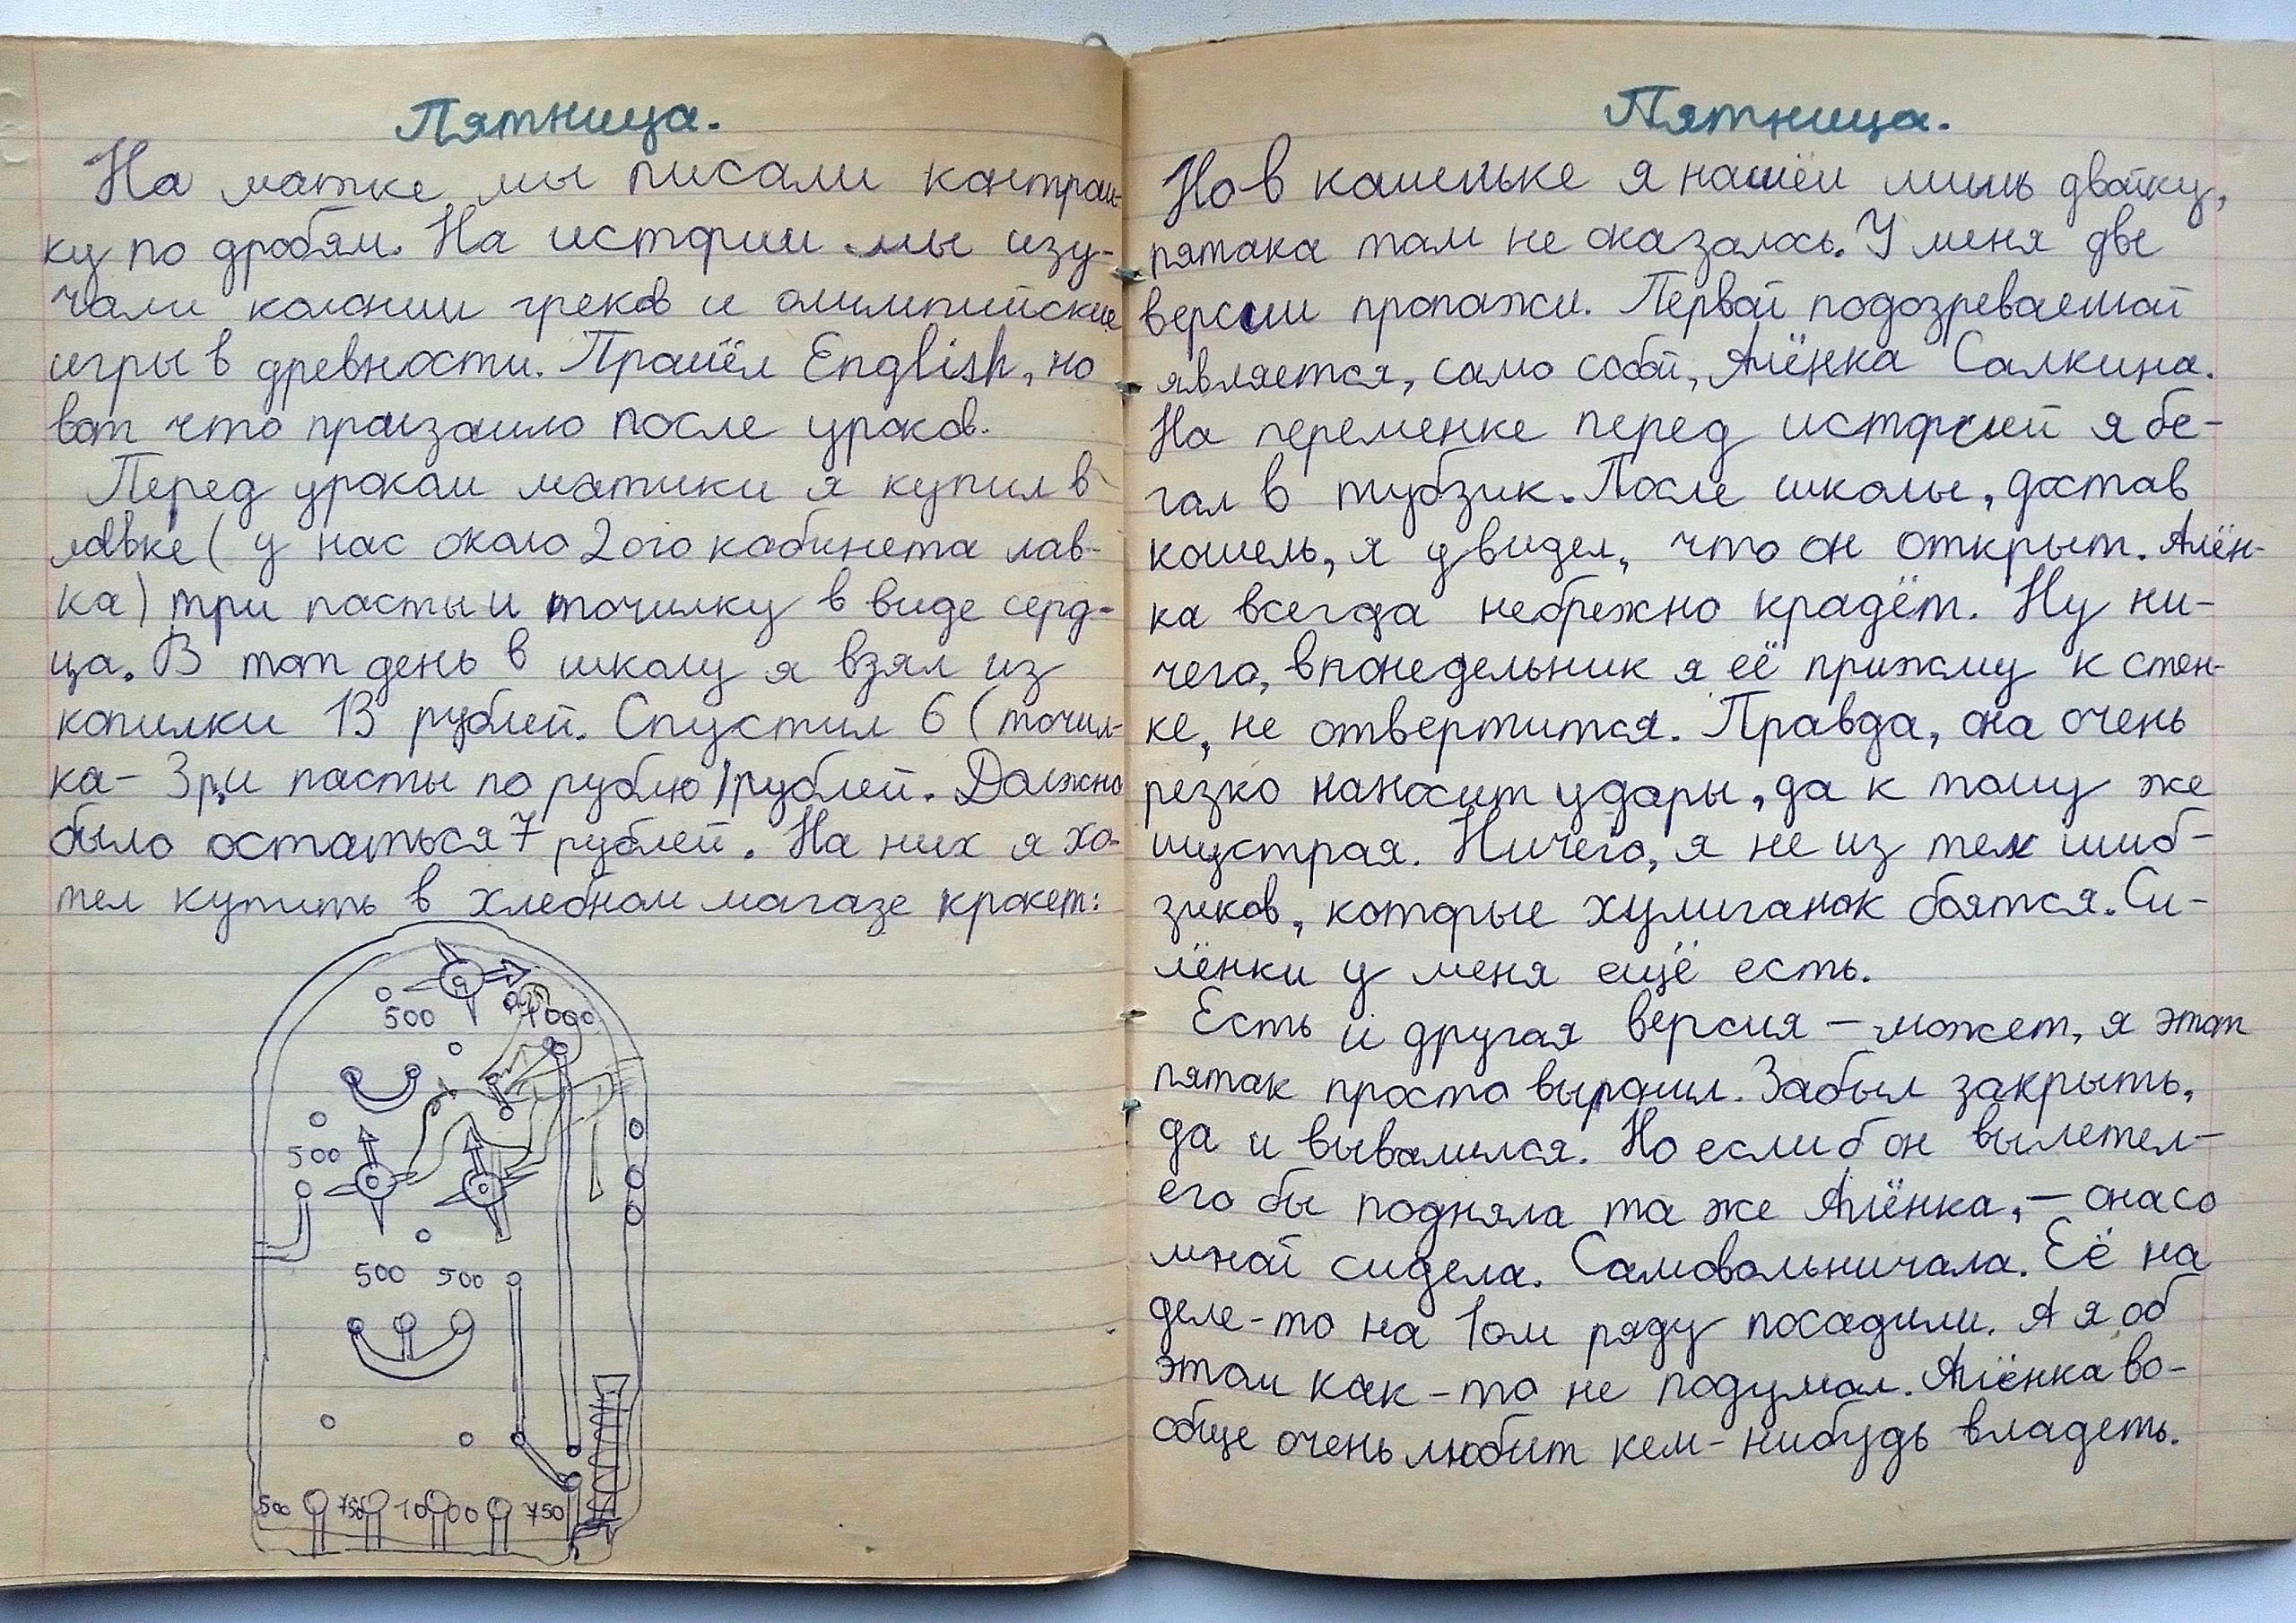 Пятница.
На матке мы писали контроль-
ку по дробям. На истории мы изу-
чали колонии греков и олимпийские
игры в древности. Прошёл English, но
вот что произошло после уроков.
Перед уроком матики я купил в
лавке (у нас около 2ого кабинета лав-
ка) три пасты и точилку в виде серд-
ца. В тот день в школу я взял из
копилки 13 рублей. Спустил 6 (точил-
ка - 3р,и пасты по рублю) рублей. Должно
было остаться 7 рублей. На них я хо-
тел купить в хлебном магазе крокет:
500
1000
500
500 500
500 750 1000 750
Пятница.
Но в кошельке я нашёл лишь двойку,
пятака там не оказалось. У меня две
версии пропажи. Первой подозреваемой
является, само собой, Алёнка Салкина.
На переменке перед историей я бе-
гал в тубзик. После школы, достав
кошель, я увидел, что он открыт. Алён-
ка всегда небрежно крадёт. Ну ни-
чего, в понедельник я её прижму к стен-
ке, не отвертится. Правда, она очень
резко наносит удары, да к тому же
шустрая. Ничего, я не из тех шиб-
зиков, которые хулиганок боятся. Си-
лёнки у меня ещё есть.
Есть и другая версия - может, я этот
пятак просто выронил. Забыл закрыть,
да и вывалился. Но если б он вылетел -
его бы подняла та же Алёнка, - она со
мной сидела. Самовольничала. Её на
деле-то на 1ом ряду посадили. А я об
этом как-то не подумал. Алёнка во-
обще очень любит кем-нибудь владеть.